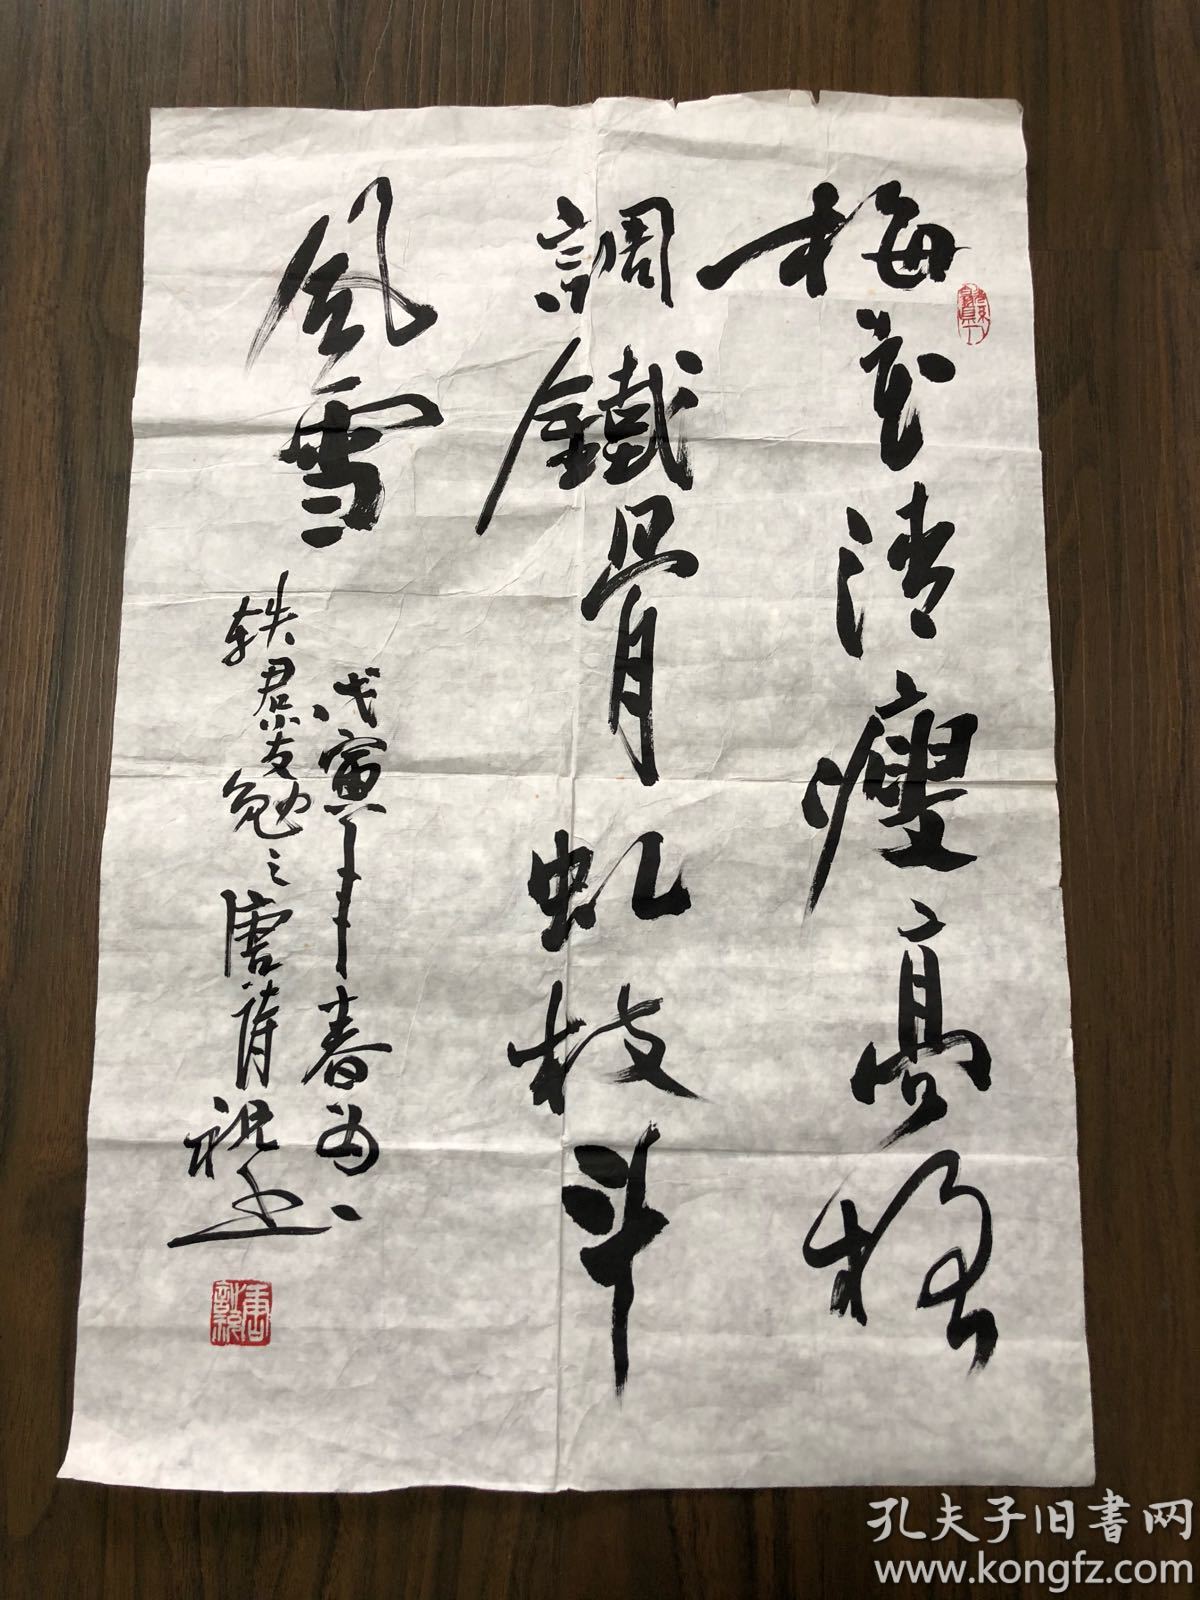 梅花清瘦高格
調鐵骨虬枝斗
風雪
戊寅年春為
軼君友勉之唐詩祝書
孔夫子旧书网
www.kongfz.com